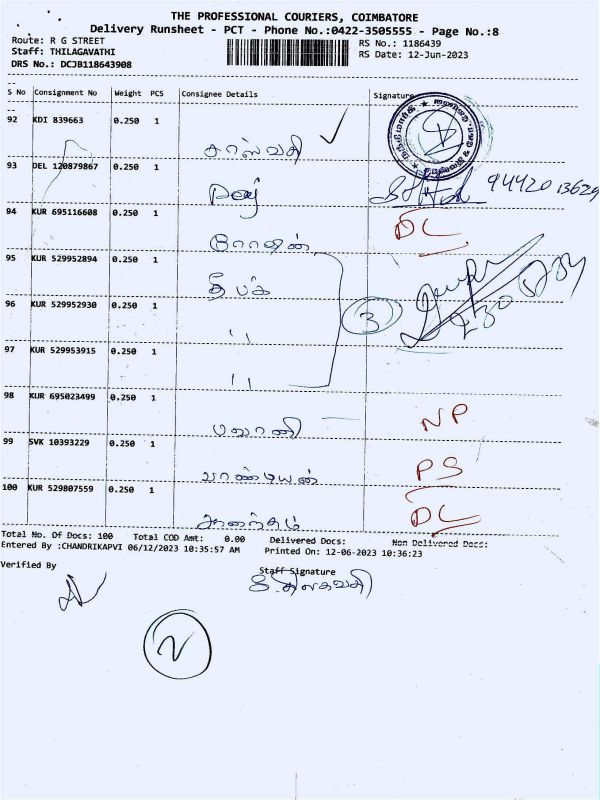 THE PROFESSIONAL COURIERS, COIMBATORE
Delivery Runsheet - PCT - Phone No.:0422-3505555 - Page No.:8
Route: R G STREET
RS No.: 1186439
Staff: THILAGAVATHI
RS Date: 12-Jun-2023
DRS No.: DCJB118643908
S No Consignment No Weight PCS Consignee Details Signature
92 KDI 839663 0.250 1
சரஸ்வதி
93 DEL 120879867 0.250 1
94420 13629
94 KUR 695116608 0.250 1
DL
ரோஷன்
95 KUR 529952894 0.250 1
தீபக்
96 KUR 529952930 0.250 1
"
3
97 KUR 529953915 0.250 1
"
98 KUR 695023499 0.250 1
பவானி
NP
99 SVK 10393229 0.250 1
பாண்டியன்
PS
100 KUR 529807559 0.250 1
DL
Total No. Of Docs: 100 Total COD Amt: 0.00 Delivered Docs: Non Delivered Docs:
Entered By :CHANDRIKAPVI 06/12/2023 10:35:57 AM Printed On: 12-06-2023 10:36:23
Verified By
Staff Signature
சி.திலகவதி
2